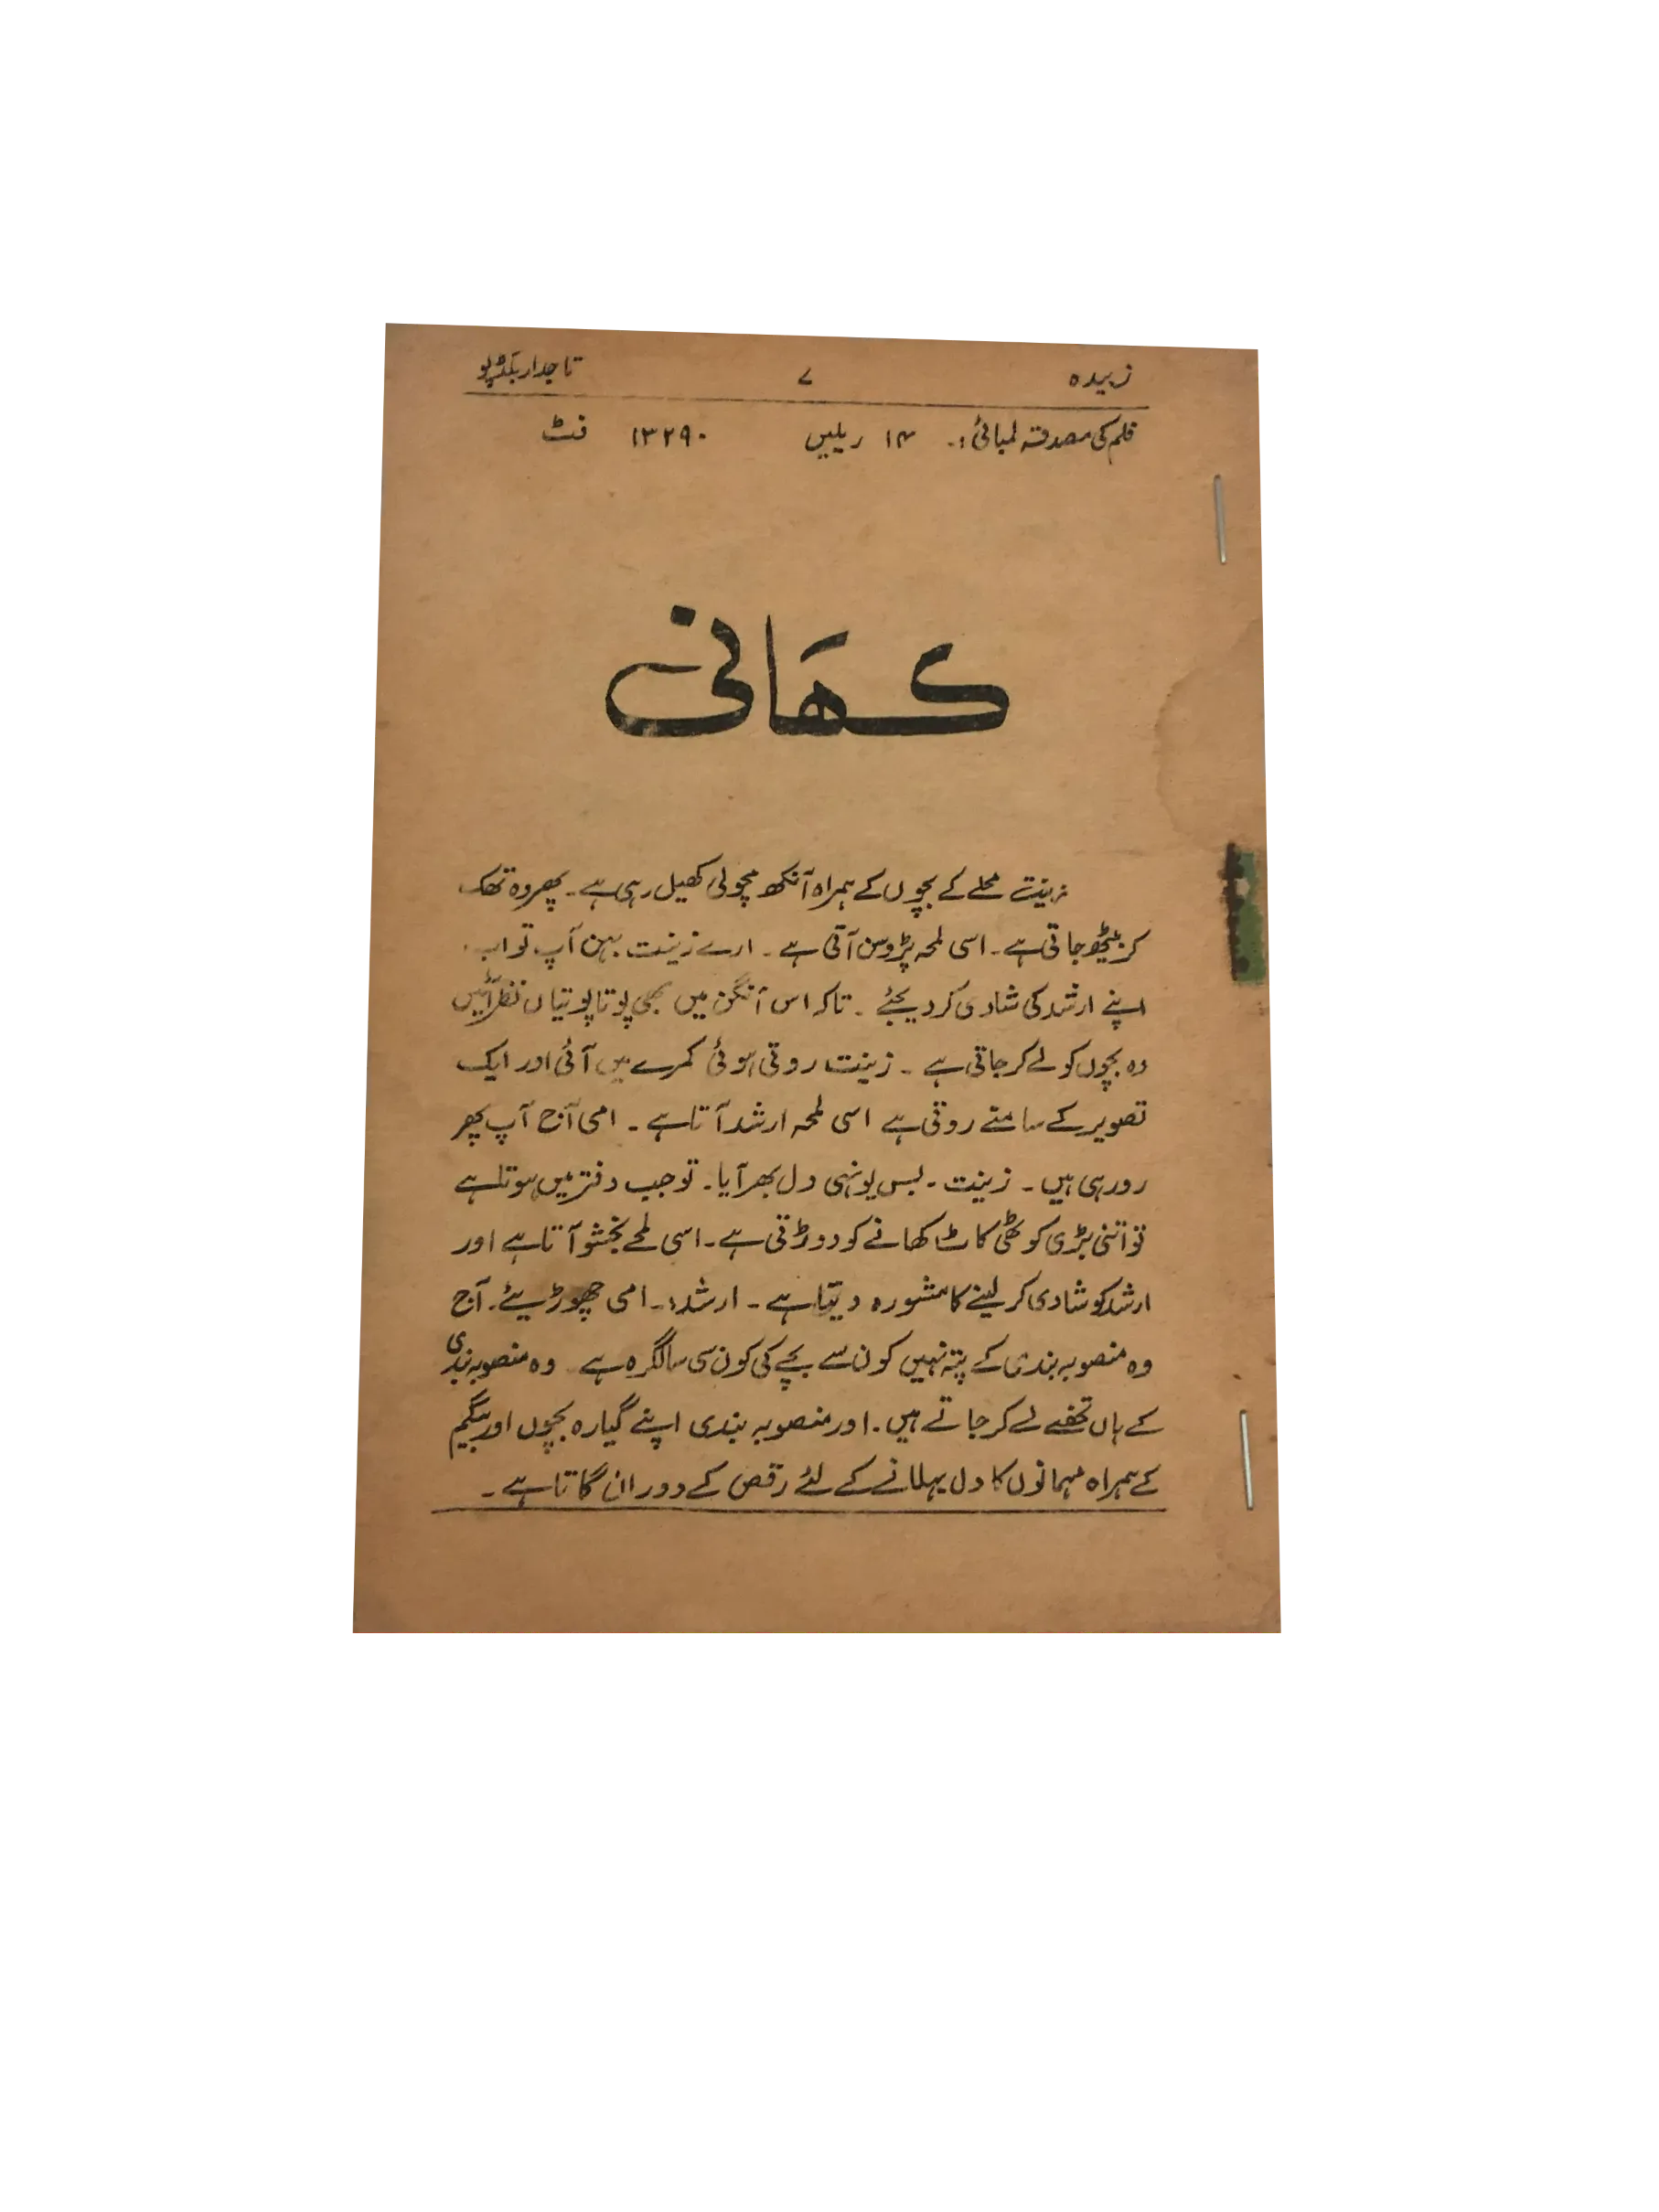 زبیدہ ۷ تاجدار بکڈپو
فلم کی مصدقہ لمبائی :۔ ۱۴ ریلیں ۱۳۲۹۰ فٹ
کہانی
زینت محلے کے بچوں کے ہمراہ آنکھ مچولی کھیل رہی ہے۔ پھر وہ تھک
کر بیٹھ جاتی ہے۔ اسی لمحہ پڑوسن آتی ہے۔ ارے زینت بہن آپ تو اب
اپنے ارشد کی شادی کر دیجئے۔ تاکہ اس آنگن میں بھی پوتا پوتیاں نظر آئیں
وہ بچوں کو لے کر جاتی ہے۔ زینت روتی ہوئی کمرے میں آئی اور ایک
تصویر کے سامنے روتی ہے اسی لمحہ ارشد آتا ہے۔ امی آج آپ پھر
رو رہی ہیں۔ زینت۔ بس یونہی دل بھر آیا۔ تو جب دفتر میں ہوتا ہے
تو اتنی بڑی کوٹھی کاٹ کھانے کو دوڑتی ہے۔ اسی لمحے بخشو آتا ہے اور
ارشد کو شادی کر لینے کا مشورہ دیتا ہے۔ ارشد:۔ امی چھوڑیئے۔ آج
وہ منصوبہ بندی کے پتہ نہیں کون سے بچے کی کون سی سالگرہ ہے وہ منصوبہ بندی
کے ہاں تحفے لے کر جاتے ہیں۔ اور منصوبہ بندی اپنے گیارہ بچوں اور بیگم
کے ہمراہ مہمانوں کا دل بہلانے کے لئے رقص کے دوران گاتا ہے۔